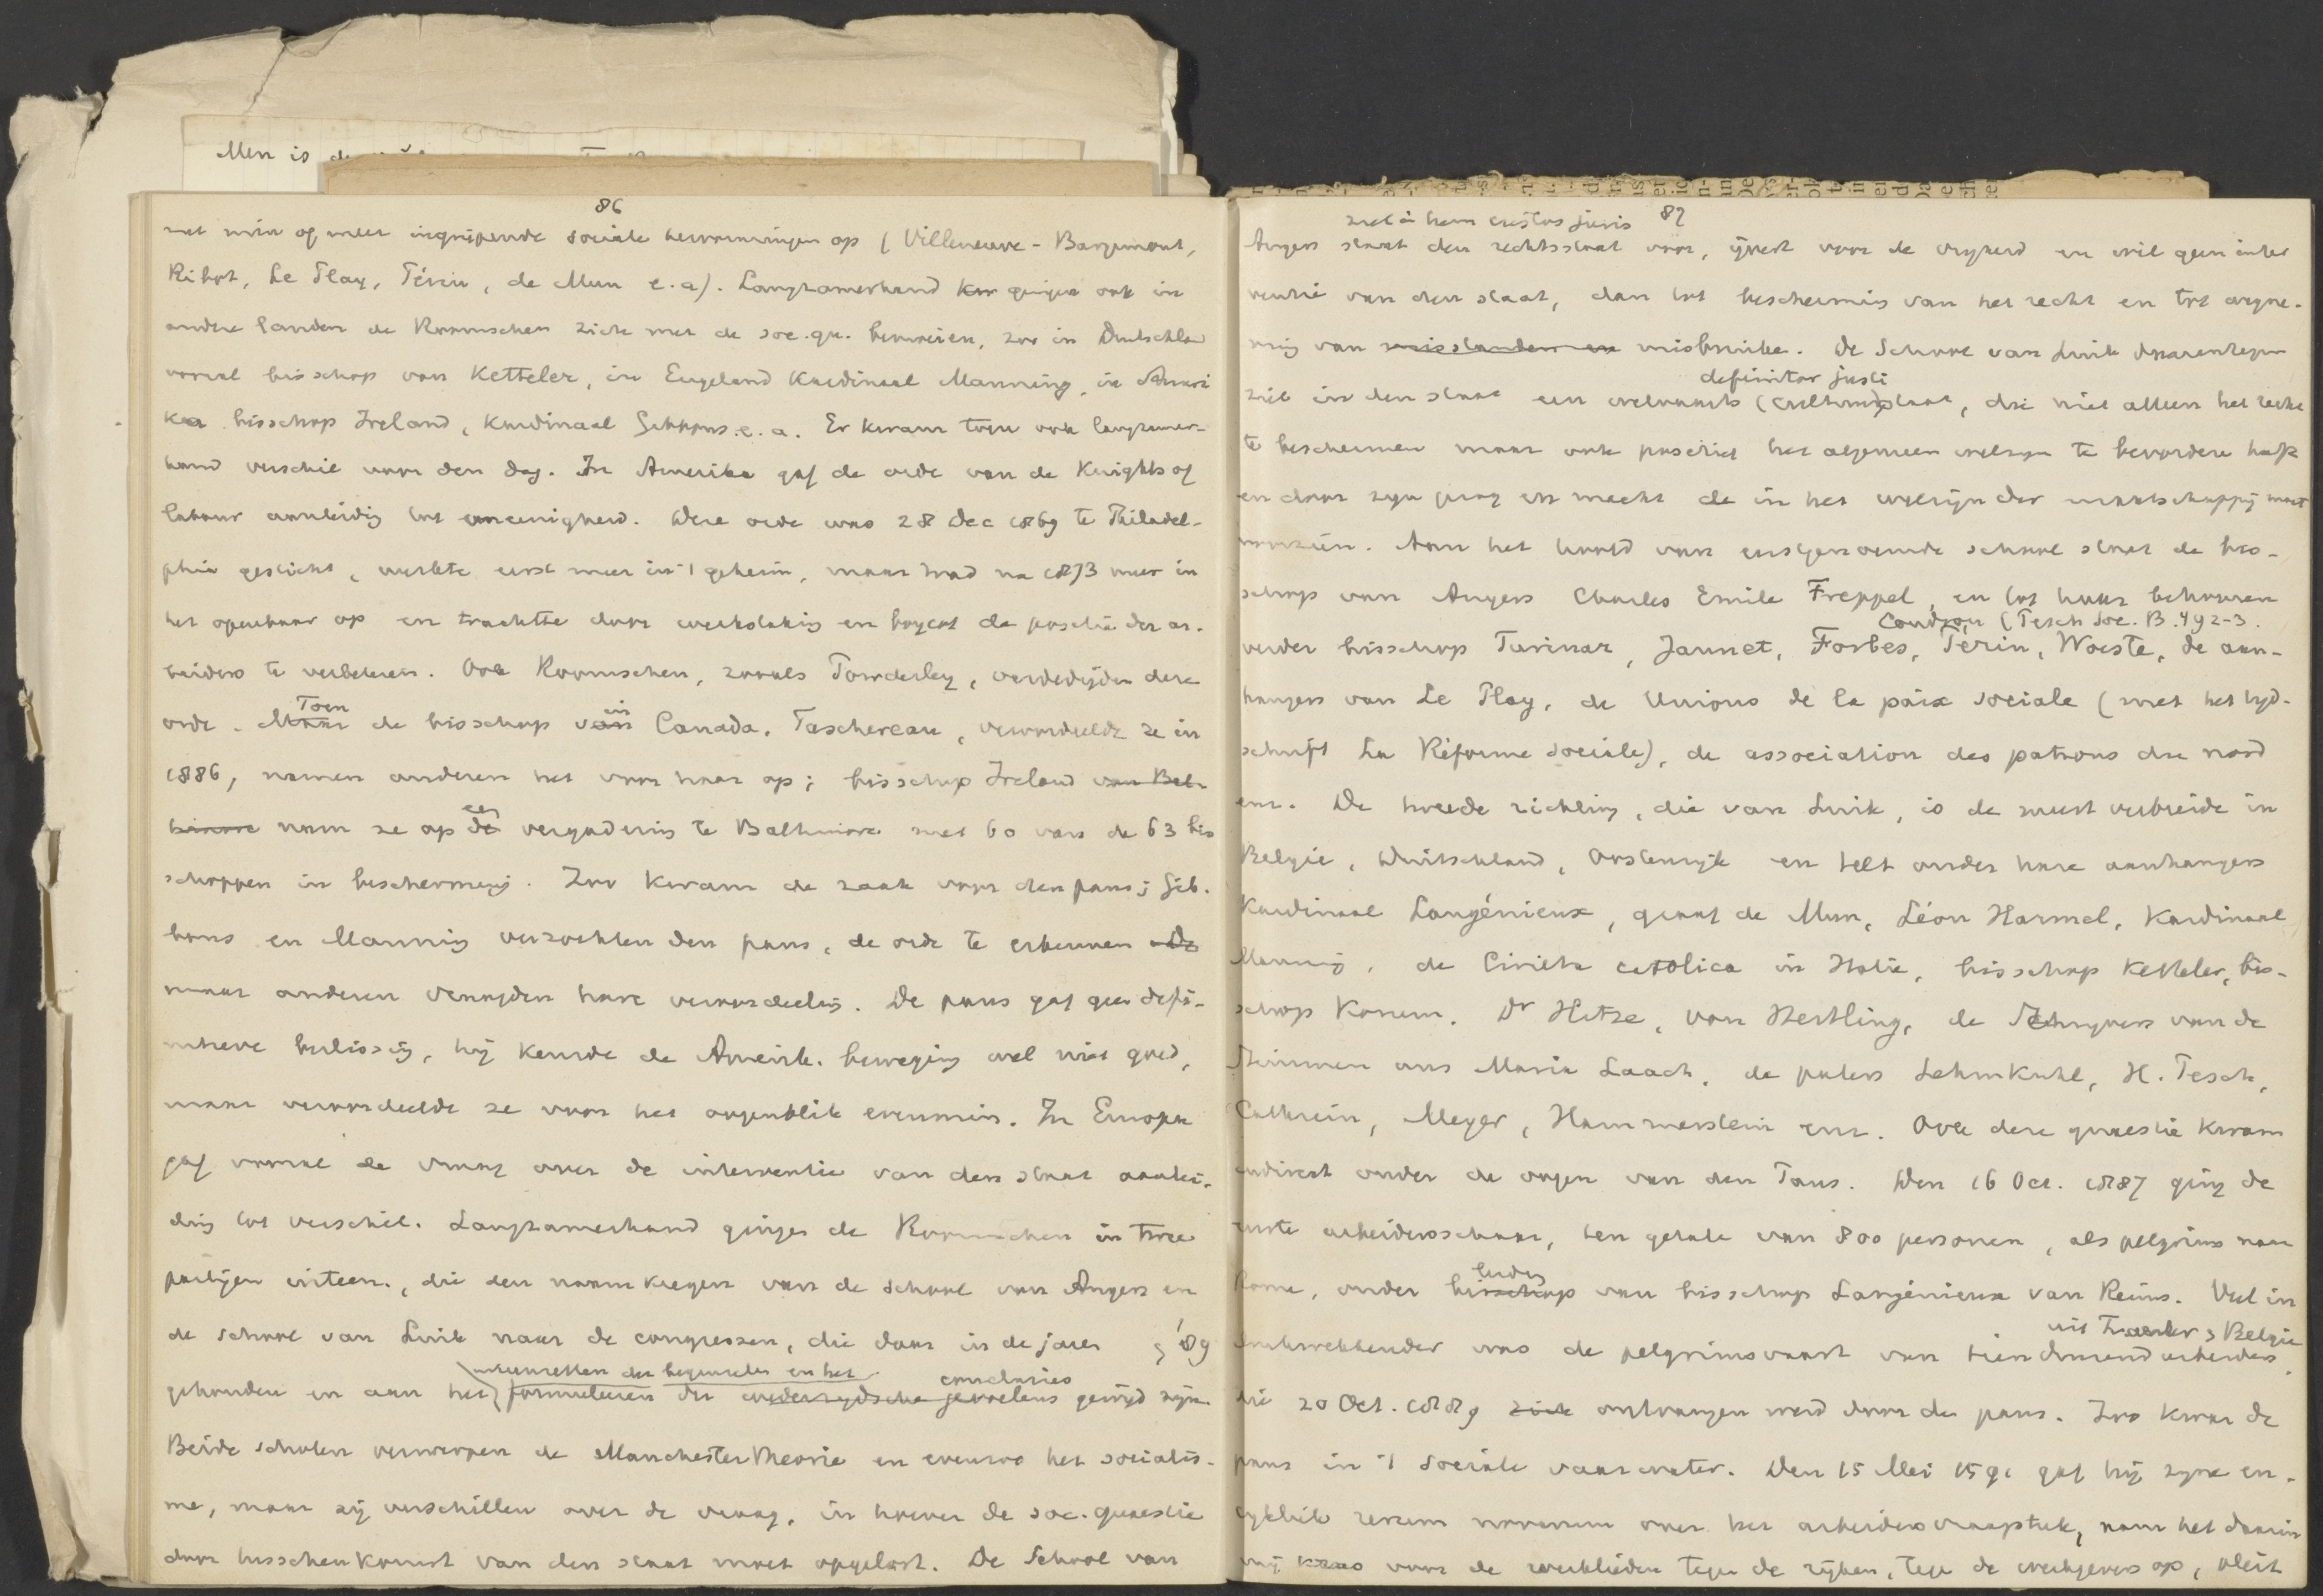 Men is
86
met min of meer ingrijpende sociale hervormingen op (Villeneuve-Bargemont,
Ribot, Le Play, Périn, de Mun e.a). Langzamerhand gingen ook in
andere landen de Roomschen zich met de soc. qu. bemoeien, zoo in Duitschld
vooral bisschop von Ketteler, in Engeland Kardinaal Manning, in Ameri
ka bisschop Ireland, Kardinaal Gibbons e.a. Er kwam toen ook langzamer-
hand verschil voor den dag. In Amerika gaf de orde van de Knights of
labour aanleiding tot oneenigheid. Deze orde was 28 Dec 1869 te Philadel-
phia gesticht, werkte eerst meer in 't geheim, maar trad na 1873 meer in
het openbaar op en trachtte door werkstaking en boycot de positie der ar-
beiders te verbeteren. Ook Roomschen, zooals Powderley, verdedigden deze
orde. Maar Toen de bisschop van in Canada, Taschereau, veroordeelde ze in
1886, namen anderen het voor haar op; bisschop Ireland van Bal-
timore nam ze op de een vergadering te Baltimore met 60 van de 63 bis
schoppen in bescherming. Zoo kwam de zaak voor den paus; Gib-
bons en Manning verzochten den paus, de orde te erkennen De
maar anderen vraagden hare veroordeeling. De paus gaf geen defi-
nitieve beslissing, hij kende de Amerik. beweging wel niet goed,
maar veroordeelde ze voor het oogenblik evenmin. In Europa
gaf vooral de vraag over de interventie van den staat aanlei-
ding tot verschil. Langzamerhand gingen de Roomschen in twee
partijen uiteen, die den naam kregen van de school van Angers en
de school van Luik naar de congressen, die daar in de jaren '89
gehouden en aan het uiteenzetten der beginselen en het formuleeren der wederzijdsche gevoelens conclusies gewijd zijn.
Beide scholen verwerpen de Manchester theorie en evenzoo het socialis-
me, maar zij verschillen over de vraag, in hoever de soc. quaestie
door tusschenkomst van den staat moet opgelost. De School van
87
ziet in hem custos juris
Angers staat den rechtsstaat voor, ijvert voor de vrijheid en wil geen inter
ventie van den staat, dan tot bescherming van het recht en tot wegne-
ming van misstanden en misbruiken. De School van Luik daarentegen
definitor justi
ziet in den staat een welvaarts (cultuur)staat, die niet alleen het recht
te beschermen maar ook positief het algemeen welzijn te bevorderen heeft
en door zijn gezag en macht de in het welzijn der maatschappij moet
voorzien. Aan het hoofd van eerstgenoemde school staat de bis-
schop van Angers Charles Emile Freppel, en tot haar behooren
Coudron (Pesch Soc. B. 492-3.
verder bisschop Turinaz, Jannet, Forbes, Périn, Woeste, de aan-
hangers van Le Play, de Unions de la paix sociale (met het tijd-
schrift La Réforme sociale), de association des patrons du nord
enz. De tweede richting, die van Luik, is de meest verbreide in
België, Duitschland, Oostenrijk en telt onder hare aanhangers
Kardinaal Langénieux, graaf de Mun, Léon Harmel, Kardinaal
Manning, de Civiltà cattolica in Italie, bisschop Ketteler, bis-
schop Korum, Dr Hitze, von Hertling, de Schrijvers van de
Stimmen aus Maria Laach, de paters Lehmkuhl, H. Pesch,
Cathrein, Meyer, Hammerstein enz. Ook deze quaestie kwam
indirect onder de oogen van den Paus. Den 16 Oct. 1887 ging de
eerste arbeidersschaar, ten getale van 800 personen, als pelgrims naar
Rome, onder bisschop leiding van bisschop Langénieux van Reims. Veel in
uit Frankr & Belgie
drukwekkender was de pelgrimsvaart van tien duizend arbeiders,
die 20 Oct. 1889 zich ontvangen werd door den paus. Zoo kwam de
paus in 't sociale vaarwater. Den 15 Mei 1591 gaf hij zijne en-
cykliek rerum novarum over het arbeidersvraagstuk, nam het daarin
vrij kras voor de werklieden tegen de rijken, tegen de werkgevers op, pleit